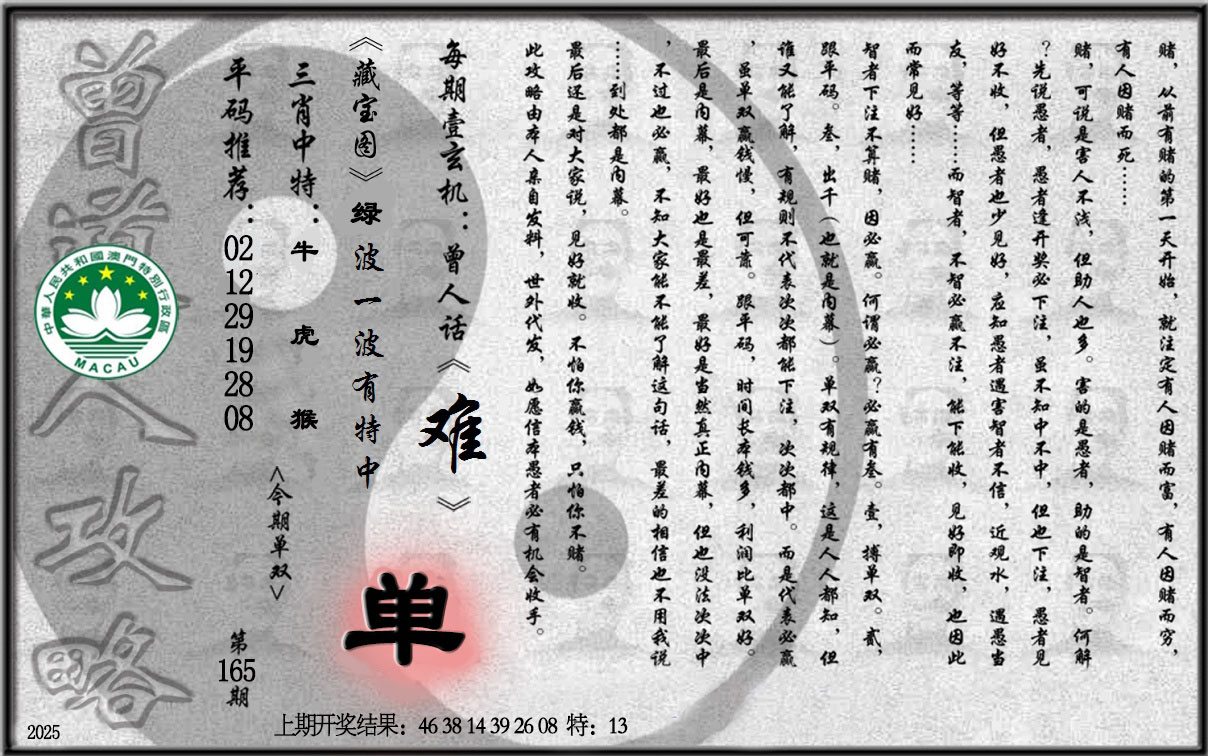 赌，从前有赌的第一天开始，就注定有人因赌而富，有人因赌而穷，
有人因赌而死……
赌，可说是害人不浅，但助人也多。害的是愚者，助的是智者。何解
？先说愚者，愚者逢开奖必下注，虽不知中不中，但也下注，愚者见
好不收，但愚者也少见好，应知愚者遇害智者不信，近观水，遇愚当
友，等等……而智者，不智必赢不注，能下能收，见好即收，也因此
而常见好……
智者下注不算赌，因必赢。何谓必赢？必赢有叁。壹，搏单双。贰，
跟平码。叁，出千（也就是内幕）。单双有规律，这是人人都知，但
谁又能了解，有规则不代表次次都能下注，次次都中。而是代表必赢
，虽单双赢钱慢，但可靠。跟平码，时间长本钱多，利润比单双好。
最后是内幕，最好也是最差，最好是当然真正内幕，但也没法次次中
，不过也必赢，不知大家能不能了解这句话，最差的相信也不用我说
……到处都是内幕。
最后还是对大家说，见好就收。不怕你赢钱，只怕你不赌。
此攻略由本人亲自发料，世外代发，如愿信本愚者必有机会收手。
每期壹玄机：曾人话《难》
《藏宝图》绿波一波有特中
单
三肖中特：牛 虎 猴
<今期单双>
平码推荐：02 12 29 19 28 08
第165期
曾道人攻略
中華人民共和國澳門特別行政區
MACAU
2025
上期开奖结果：46 38 14 39 26 08 特：13